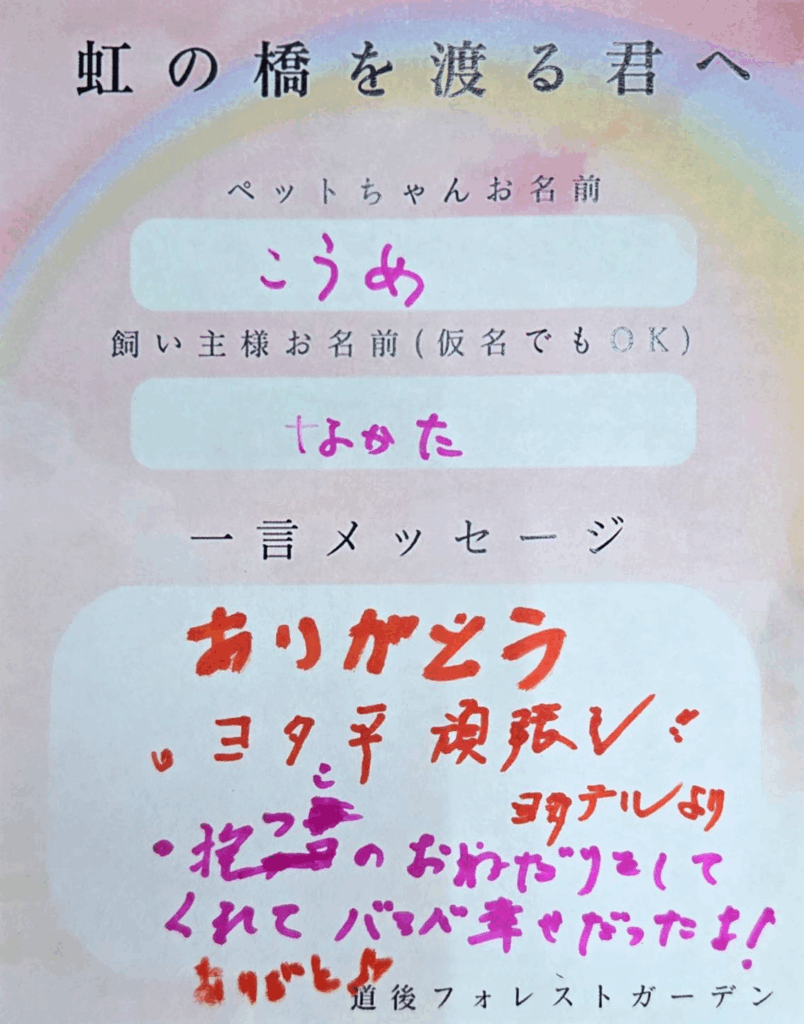 虹の橋を渡る君へ
ペットちゃんお名前
こうめ
飼い主様お名前(仮名でもOK)
なかた
一言メッセージ
ありがどう
ヨタ平 頑張レ
ヨタテルより
・抱っこのおねだりをして
くれて 幸せだったよ!
ありがと♪
道後フォレストガーデン